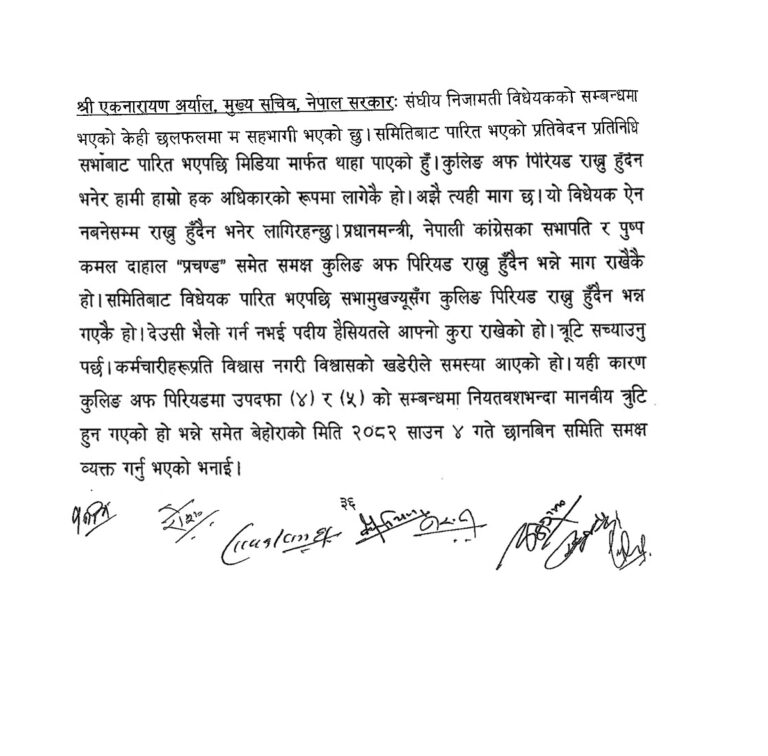 श्री एकनारायण अर्याल, मुख्य सचिव, नेपाल सरकारः संघीय निजामती विधेयकको सम्बन्धमा
भएको केही छलफलमा म सहभागी भएको छु।समितिबाट पारित भएको प्रतिवेदन प्रतिनिधि
सभाबाट पारित भएपछि मिडिया मार्फत थाहा पाएको हुँ।कुलिङ अफ पिरियड राख्नु हुँदैन
भनेर हामी हाम्रो हक अधिकारको रूपमा लागेकै हो।अझै त्यही माग छ।यो विधेयक ऐन
नबनेसम्म राख्नु हुँदैन भनेर लागिरहन्छु।प्रधानमन्त्री, नेपाली कांग्रेसका सभापति र पुष्प
कमल दाहाल "प्रचण्ड" समेत समक्ष कुलिङ अफ पिरियड राख्नु हुँदैन भन्ने माग राखेकै
हो।समितिबाट विधेयक पारित भएपछि सभामुखज्यूसँग कुलिङ पिरियड राख्नु हुँदैन भन्न
गएकै हो।देउसी भैलो गर्न नभई पदीय हैसियतले आफ्नो कुरा राखेको हो।त्रूटि सच्याउनु
पर्छ।कर्मचारीहरूप्रति विश्वास नगरी विश्वासको खडेरीले समस्या आएको हो।यही कारण
कुलिङ अफ पिरियडमा उपदफा (४) र (५) को सम्बन्धमा नियतवशभन्दा मानवीय त्रुटि
हुन गएको हो भन्ने समेत बेहोराको मिति २०८२ साउन ४ गते छानबिन समिति समक्ष
व्यक्त गर्नु भएको भनाई।
३६